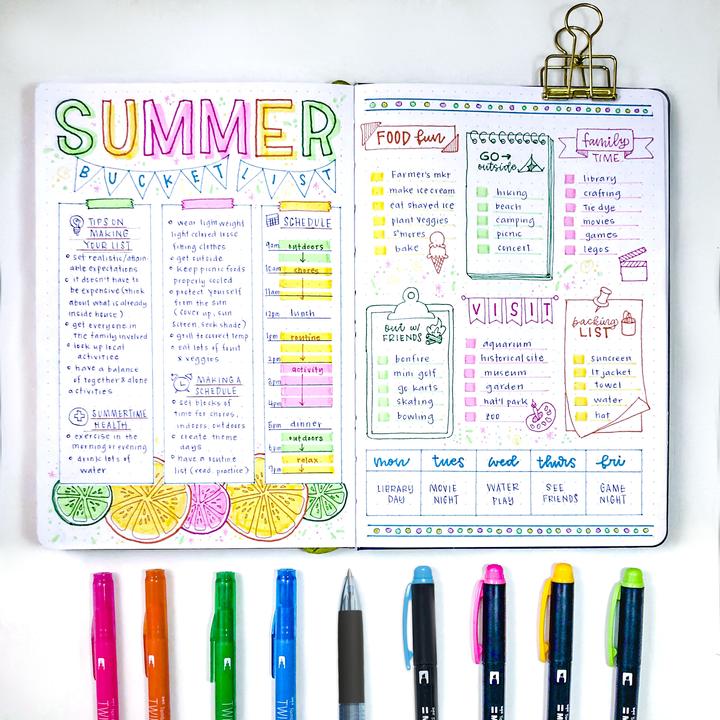 SUMMER
BUCKET LIST
TIPS ON
MAKING
YOUR LIST
set realistic/attain-
able expectations
it doesn't have to
be expensive (think
about what is already
inside house)
get everyone in
the family involved
look up local
activities
have a balance
of together & alone
activities
SUMMERTIME
HEALTH
exercise in the
morning or evening
drink lots of
water
wear lightweight
light colored loose
fitting clothes
get outside
keep picnic foods
properly cooled
protect yourself
from the sun
(cover up, sun
screen, seek shade)
grill to correct temp
eat lots of fruit
& veggies
MAKING A
SCHEDULE
set blocks of
time for chores,
indoors, outdoors
create theme
days
have a routine
list (read, practice)
SCHEDULE
9am outdoors
10am chores
11am
12pm lunch
1pm routine
2pm activity
3pm
4pm
5pm dinner
6pm outdoors
relax
9pm
FOOD fun
Farmer's mkt
make ice cream
eat shaved ice
plant veggies
s'mores
bake
GO→
outside
hiking
beach
camping
picnic
concert
family
TIME
library
crafting
Tie dye
movies
games
legos
out w/
FRIENDS
bonfire
mini golf
go karts
skating
bowling
VISIT
aquarium
historical site
museum
garden
nat'l park
zoo
packing
LIST
suncreen
lt jacket
towel
water
hat
mon tues wed thurs fri
LIBRARY DAY
MOVIE NIGHT
WATER PLAY
SEE FRIENDS
GAME NIGHT